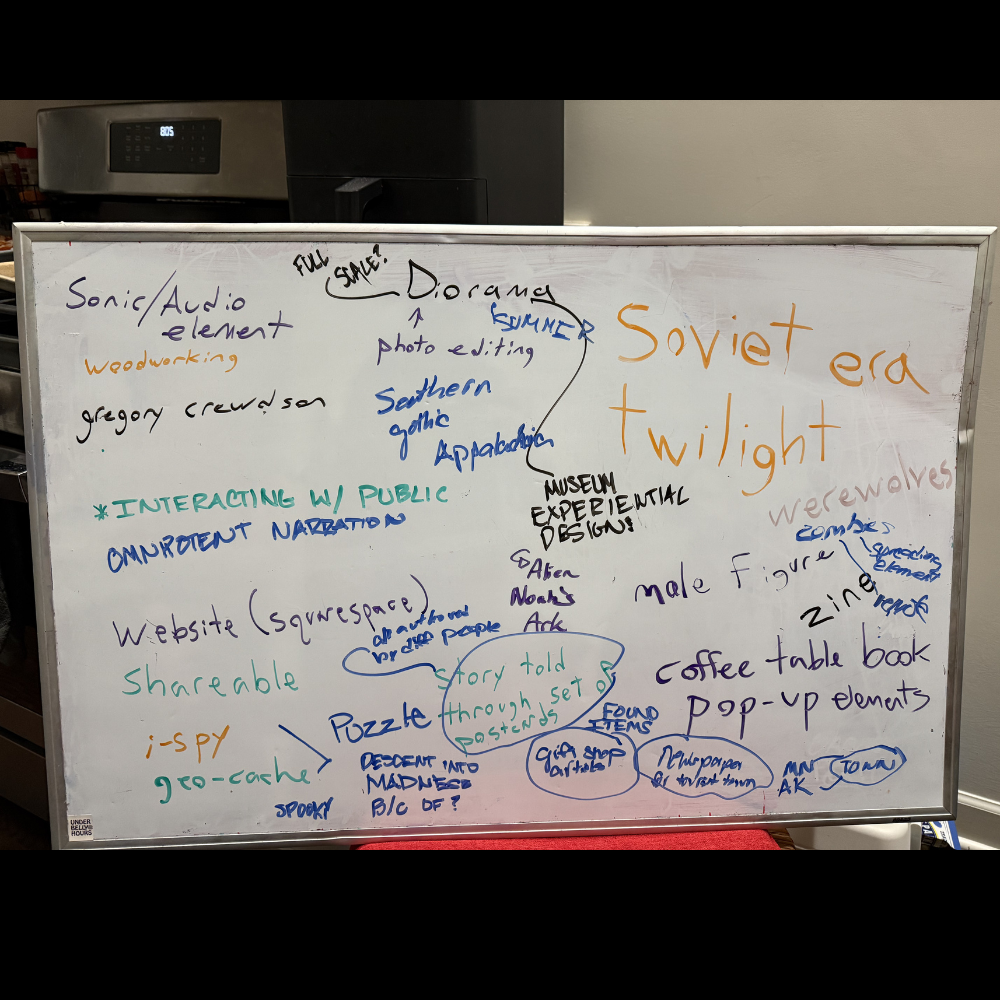 805
FULL
SCALE?
Diorama
Sonic/Audio
element
SUMMER
Soviet era
twilight
woodworking
photo editing
gregory crewdson
Southern
gothic
Appalachia
*INTERACTING W/ PUBLIC
OMNIPOTENT NARRATION
MUSEUM
EXPERIENTIAL
DESIGN!
werewolves
zombies
spreading
element
Alien
Noah's
Ark
male Figure
zine
Website (squarespace)
by diff people
coffee table book
pop-up elements
Shareable
Story told
through set of
postcards
Puzzle
FOUND
ITEMS
i-spy
geo-cache
SPOOKY
DESCENT INTO
MADNESS
B/C OF?
gift shop
Newspaper
MN
AK
TOWN
UNDER
BELLY
HOURS